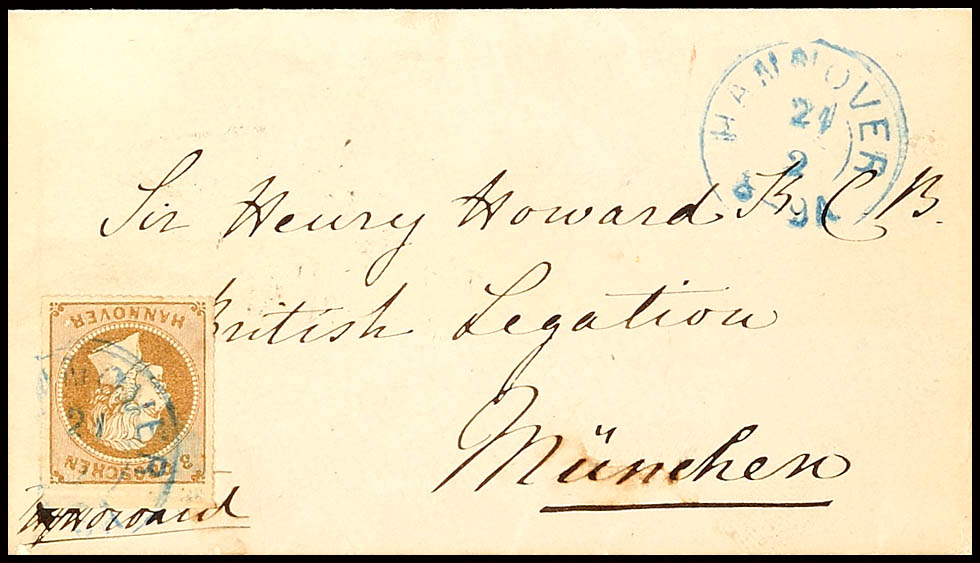 HANNOVER
24
2
Sir Henry Howard K. C. B.
British Legation
München
HANNOVER
3 GROSCHEN
Howard